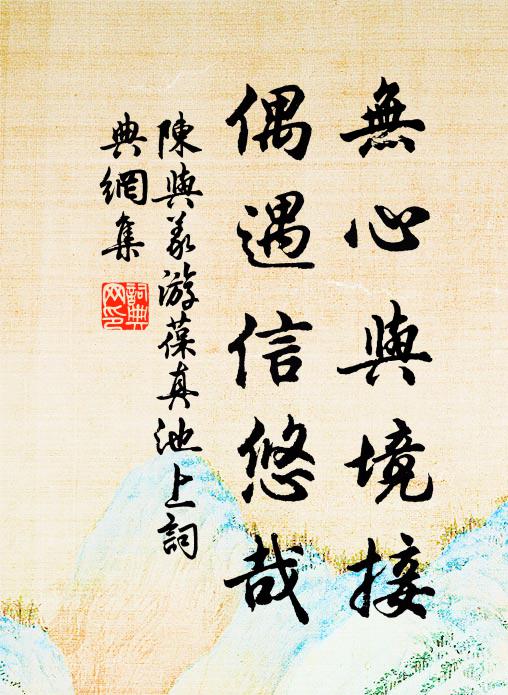 無心與境接
偶遇信悠哉
陳與義游葆真池上詞
典網集
詞典
网印